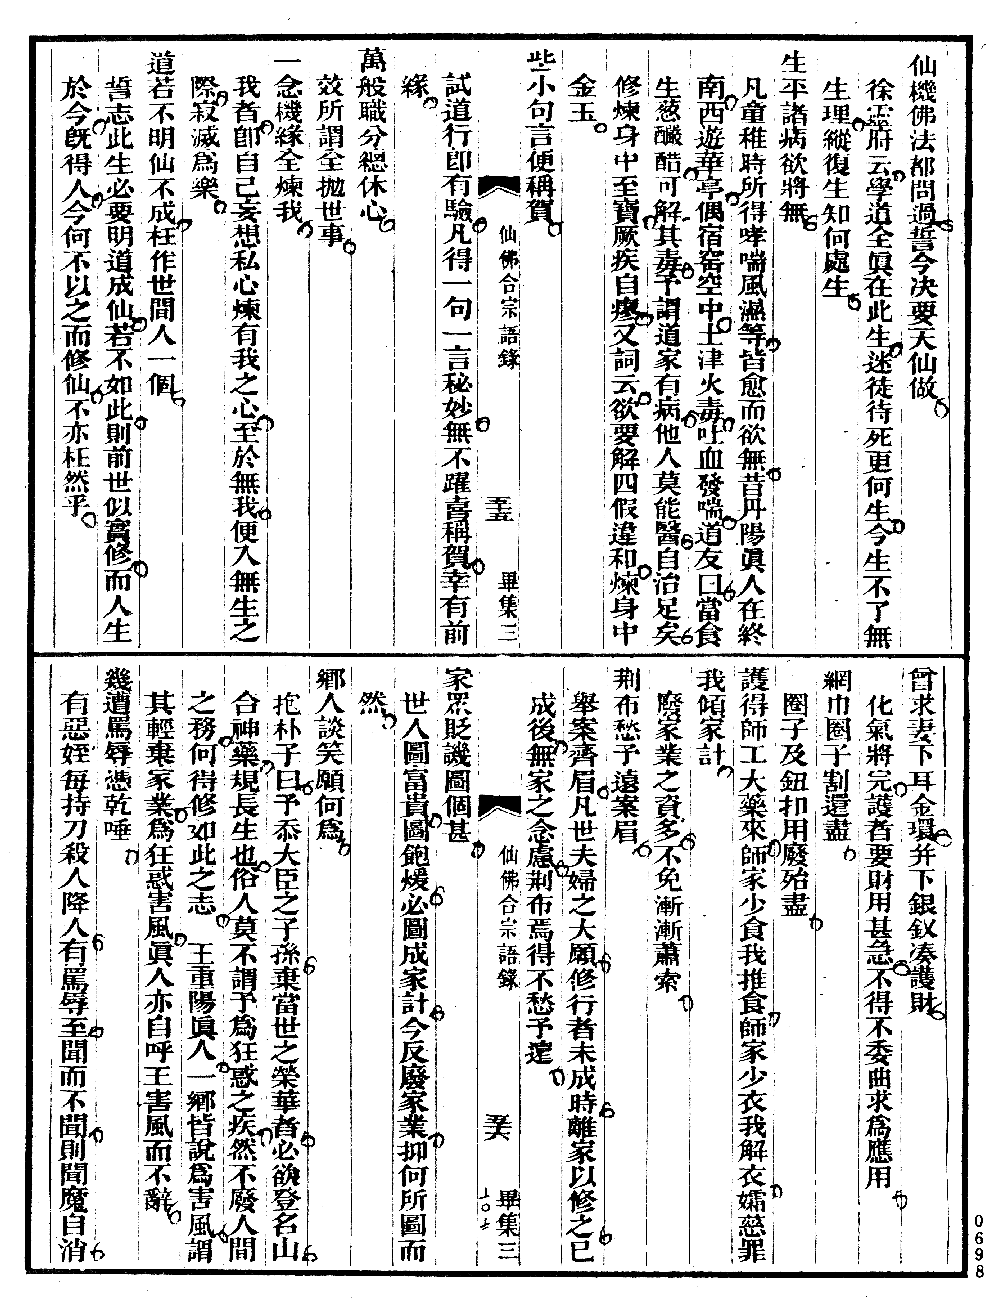 仙機佛法都問過誓今決要天仙做
徐靈府云學道全眞在此生迷徒待死更何生今生不了無
生理縱復生知何處生
生平諸病欲將無
凡童稚時所得哮喘風濕等皆愈而欲無昔丹陽眞人在終
南西遊華亭偶宿窰空中土津火毒吐血發喘道友曰當食
生葱釅醋可解其毒予謂道家有病他人莫能醫自治足矣
修煉身中至寶厥疾自瘳又詞云欲要解四假違和煉身中
金玉
些小句言便稱賀
仙佛合宗語錄　　　畢集三
試道行卽有驗凡得一句一言秘妙無不躍喜稱賀幸有前
緣
萬般職分總休心
效所謂全拋世事
一念機緣全煉我
我者卽自己妄想私心煉有我之心至於無我便入無生之
際寂滅爲樂
道若不明仙不成枉作世間人一個
誓志此生必要明道成仙若不如此則前世似實修而人生
於今旣得人今何不以之而修仙不亦枉然乎
曾求妻下耳金環并下銀釵湊護財
化氣將完護者要財用甚急不得不委曲求爲應用
網巾圈子割還盡
圈子及鈕扣用廢殆盡
護得師工大藥來師家少食我推食師家少衣我解衣孀慈罪
我傾家計
廢家業之資多不免漸漸蕭索
荆布愁予遠案眉
舉案齊眉凡世夫婦之大願修行者未成時離家以修之已
成後無家之念慮荆布焉得不愁予遠
仙佛合宗語錄　　　畢集三
家眾貶譏圖個甚
世人圖富貴圖飽煖必圖成家計今反廢家業抑何所圖而
然
鄉人談笑願何爲
抱朴子曰予忝大臣之子孫棄當世之榮華者必欲登名山
合神藥規長生也俗人莫不謂予爲狂惑之疾然不廢人間
之務何得修如此之志　王重陽眞人一鄉皆說爲害風謂
其輕棄家業爲狂惑害風眞人亦自呼王害風而不辭
幾遭罵辱憑乾唾
有惡姪每持刀殺人降人有罵辱至聞而不聞則聞魔自消
0698